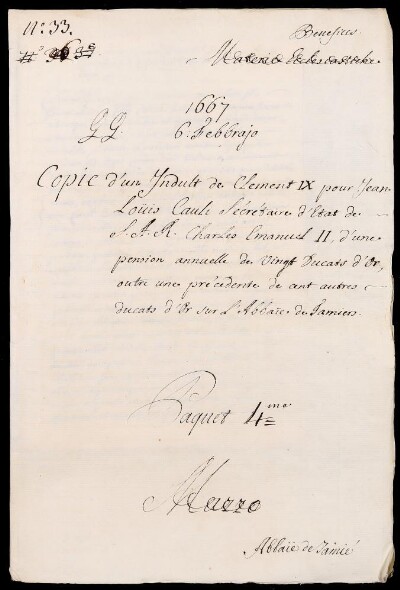 N.º 33.
Benefices
N.º 36 38
Materie Ecclesiastiche
1667
GG. 6. Febbrajo
Copie d'un Indult de Clement IX pour Jean
Loüis Caule Sécrétaire d'Etat de
S. A. R. Charles Emanuel II, d'une
pension annuelle de vingt Ducats d'Or,
outre une précédente de cent autres
ducats d'Or sur l'Abbaïe de Tamiers.
Paquet 4.mo
Mazzo
Abbaïe de Tamié